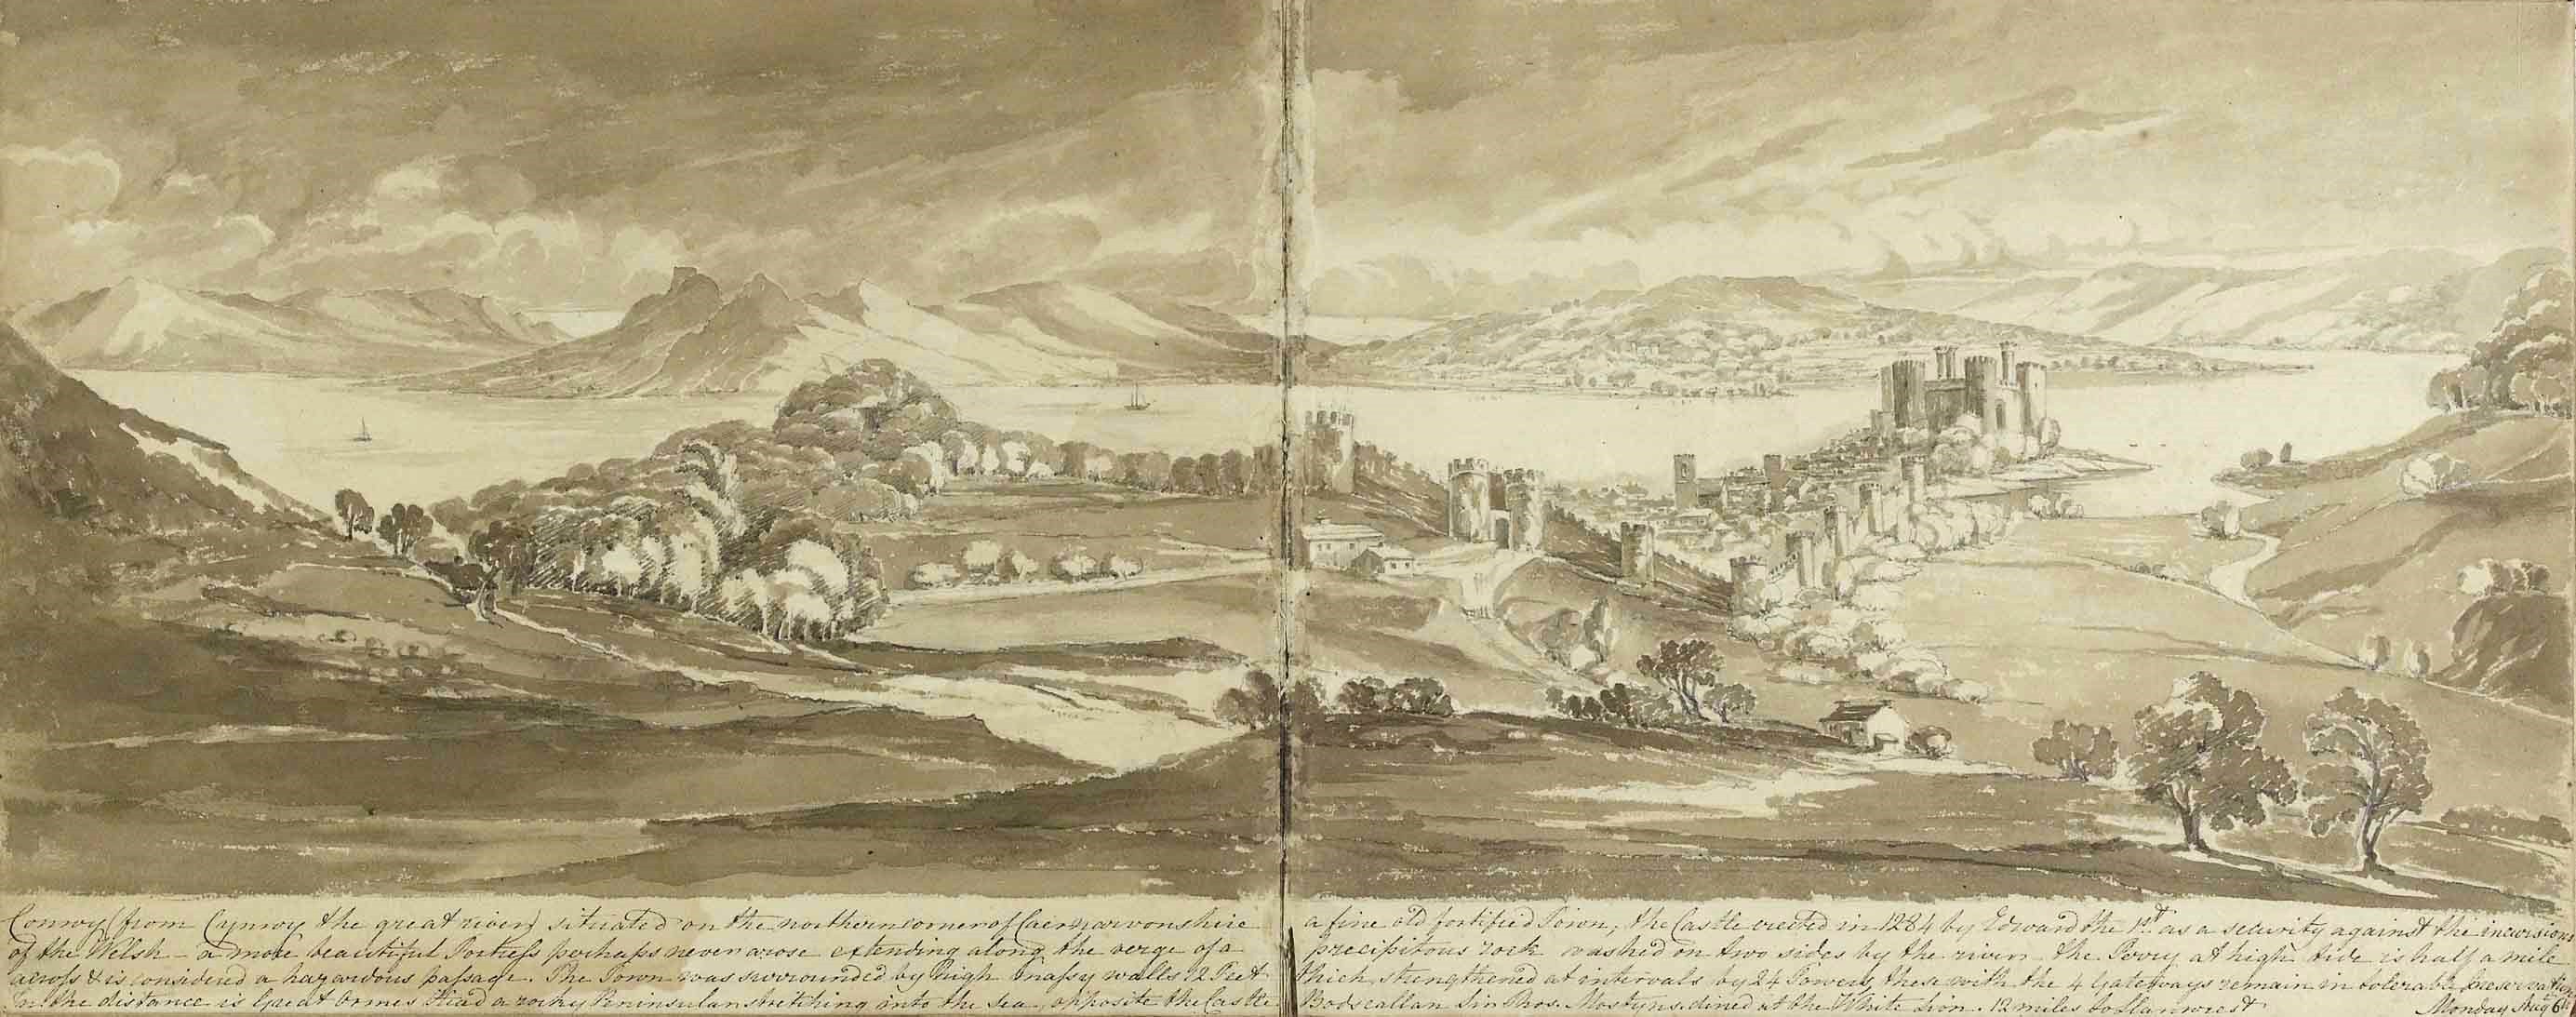 Conwy (from Cynwy the great river) situated on the northern corner of Caernarvonshire a fine old fortified Town, the Castle erected in 1284 by Edward the 1st as a security against the incursions
of the Welsh – a more beautiful Fortress perhaps never arose extending along the verge of a precipitous rock washed on two sides by the river – the Ferry at high tide is half a mile
across & is considered a hazardous passage. The Town was surrounded by high massy walls 12 Feet thick, strengthened at intervals by 24 Towers, these with the 4 Gateways remain in tolerable preservation
In the distance is Great Ormes Head a rocky Peninsula stretching into the Sea, opposite the Castle Bodscallan Sir Thos. Mostyns. dined at the White Lion. 12 miles to Llanwrst Monday Aug 6th